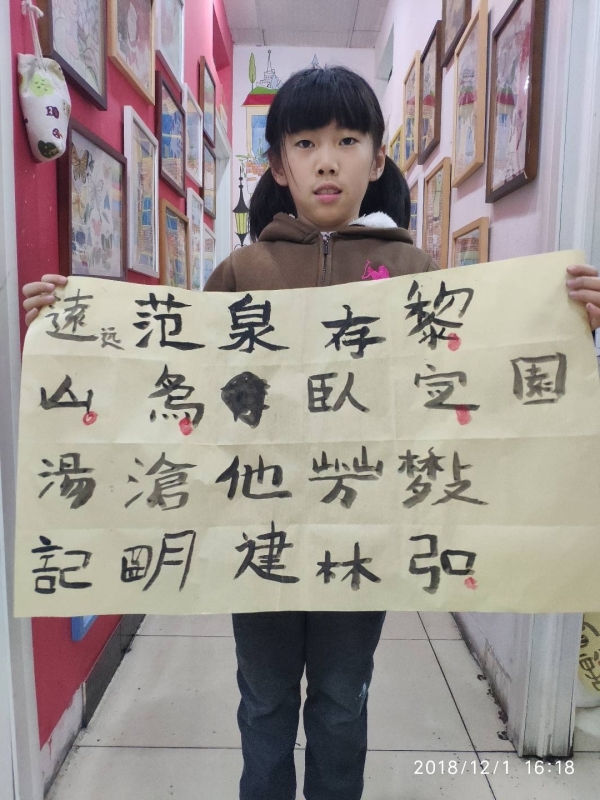 遠远范泉存黎
山為臥定園
湯滄他勞數
記明建林弘
2018/12/1 16:18